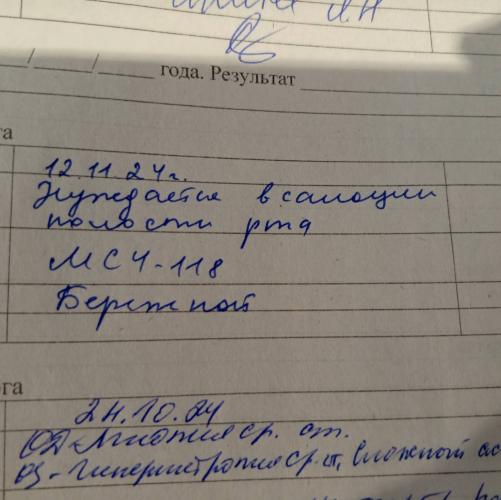 года. Результат
12.11.24г.
Нуждается в санации
полости рта
МСЧ-118
Бережной
24.10.24
OD - Миопия ср. ст.
OS - Гиперметропия ср. ст, Сложный ас